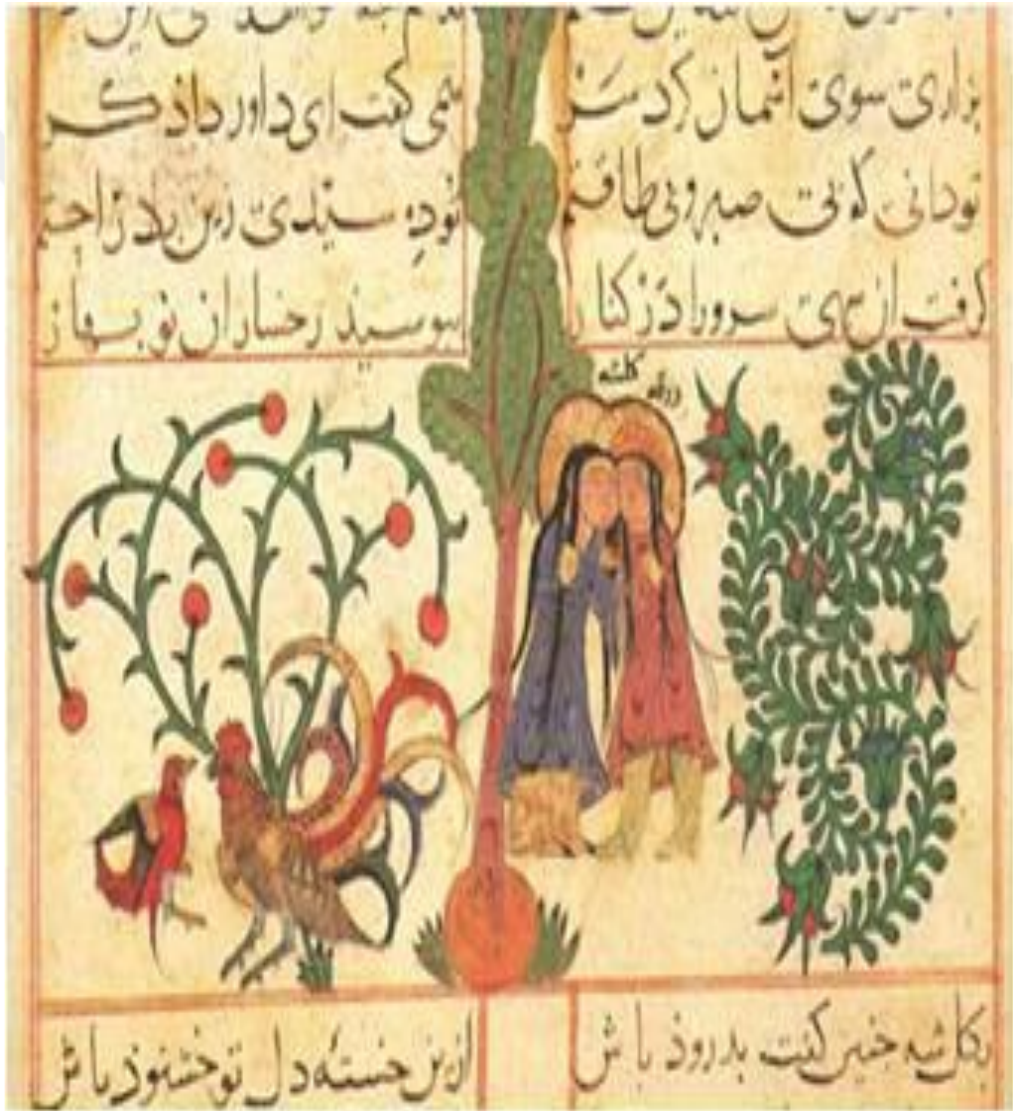 بزاری سوی اسمان کرد سر همی کفت ای داور داذکر
تو دانی که بی صبر و بی طاقتم تو ده زین راحتم
کرفت ان سرو را در کنار ببوسیذ رخسار ان نو بهار
ورقه کلشه
بکلشه جنین کفت بدروذ باش ازین خسته دل تو خشنوذ باش